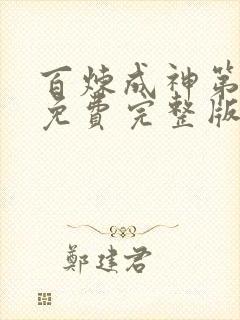 百炼成神第
免費完整版
鄭建君